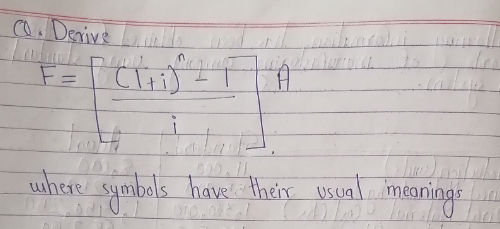 Q. Derive
F = [ (1+i)^n - 1 / i ] A.
where symbols have their usual meanings